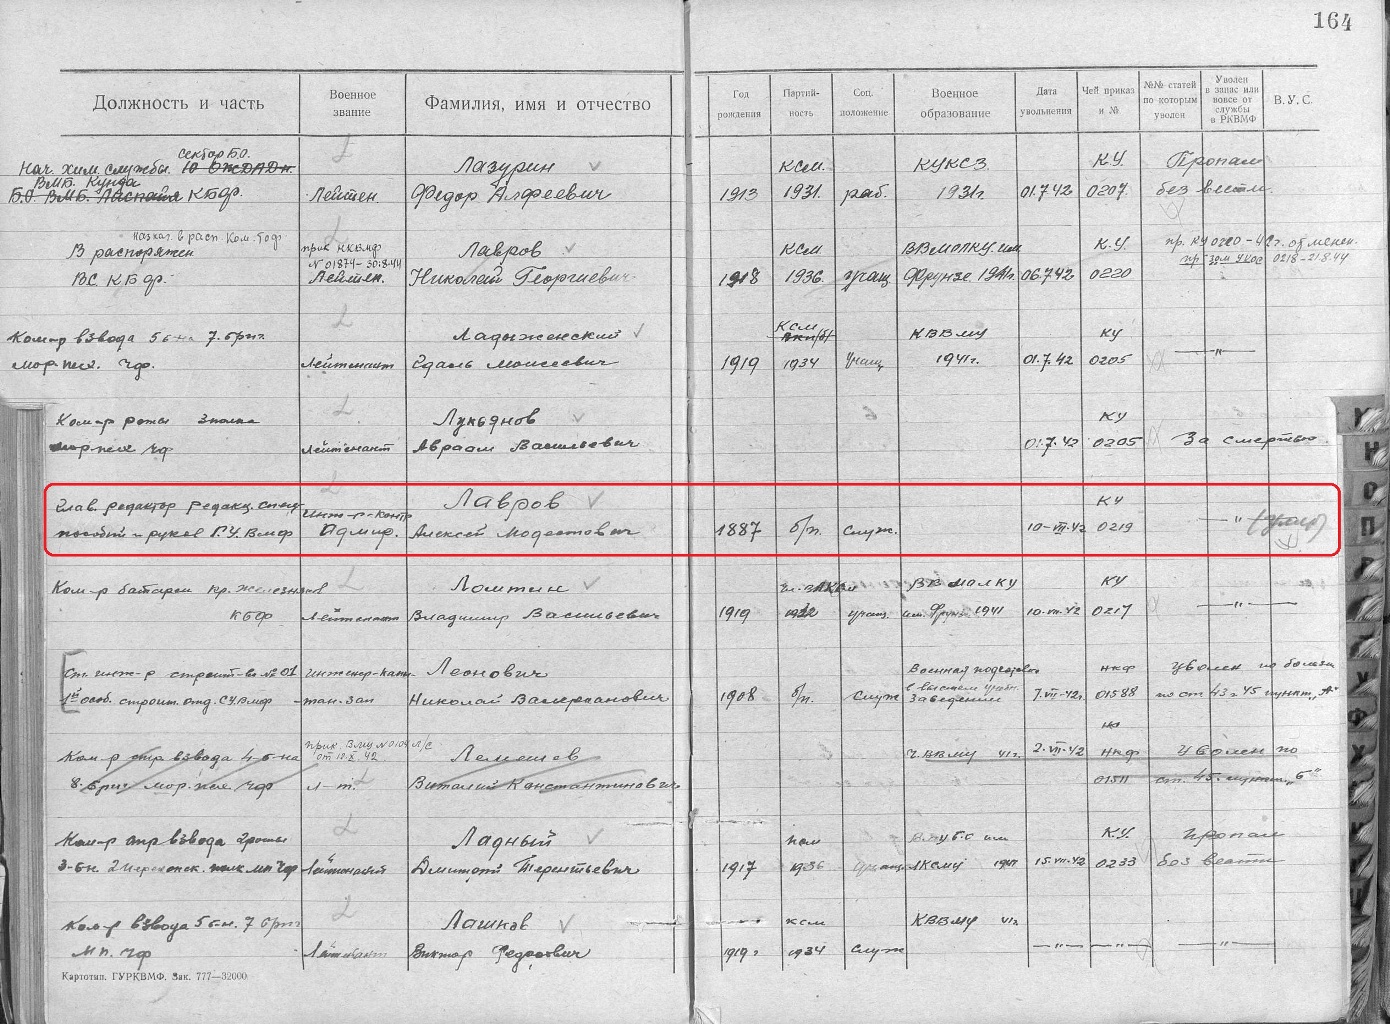 164
Должность и часть
Военное звание
Фамилия, имя и отчество
Год рождения
Партийность
Соц. положение
Военное образование
Дата увольнения
Чей приказ и №
№№ статей по которым уволен
Уволен в запас или вовсе от службы в РКВМФ
В.У.С.
сектор Б.О.
Нач. хим. службы Лазурин КСМ. КУКСЗ К.У. Пропал
ВМБ. Кунда
Б.О. ВМБ. КБФ. Лейтен. Федор Алфеевич 1913 1931. раб. 1931г. 01.7.42 0207. без вести
Назнач. в расп. Ком. ТоФ
В распоряжен прик НКВМФ Лавров КСМ. ВВМОЛКУ. им К.У. пр. КУ 0220-42г. отменен.
№ 01874-30.8.44 0218-21.8.44
ВС КБФ. Лейтен. Николай Георгиевич 1918 1936. учащ. Фрунзе. 1941г. 06.7.42 0220
Комар взвода 5 б-на 7. бриг. Ладыженский КСМ КВВМУ КУ
мор. пех. ЧФ. Лейтенант Моисеевич 1919 1934 учащ. 1941г. 01.7.42 0205 —"—
Ком-р роты 3 полка Лукьянов КУ
мор пех ЧФ Лейтенант Авраам Васильевич 01.7.42 0205 За смертью
Глав. редактор редакц. спец. Инж-р-контр Лавров КУ
пособий и руков Г.У. ВМФ Адмир. Алексей Модестович 1887 б/п. служ. 10-VII-42 0219 —"— (умер)
Ком-р батареи Ломтин ВВМОЛКУ КУ
КБФ Лейтенант Владимир Васильевич 1919 учащ. им. Фрунзе 1941 10-VII-42 0217 —"—
Ст. инж-р строит-ва №01 Инженер-капи- Леонович Военная подготовка НКФ Уволен по болезни
1й особ. строит. отд. СУ ВМФ тан. 3 ап Николай Валерианович 1908 б/п. служ в высшем учебн. заведении 7.VII-42г. 01588 по ст. 43 г 45 пункт „А"
Ком-р стр взвода 4-б-на прик. ВМУ № 0109 л/с от 10.X.42 Лемешев Ч. ВВМУ 41г. 2-VII-42 НКФ Уволен по
8. бриг мор. пех ЧФ Л-т. Виталий Константинович 01511 ст. 45. пункт „Б"
Ком-р стр взвода 2 роты Ладный КСМ К.У. Пропал
3-б-н. 2 Перекопск. полк МП ЧФ Лейтенант Дмитрий Терентьевич 1917 1936 учащ ЛКСМУ 1941 15-VII-42 0233 без вести
Ком-р взвода 5 б-н. 7 бриг Лашков КСМ КВВМУ 41г
МП. ЧФ Лейтенант Виктор Федорович 1919г 1934 служ —"— —"— —"—
Картотип. ГУРКВМФ. Зак. 777—32000
К
Н
О
П
Р
У
Ф
Х